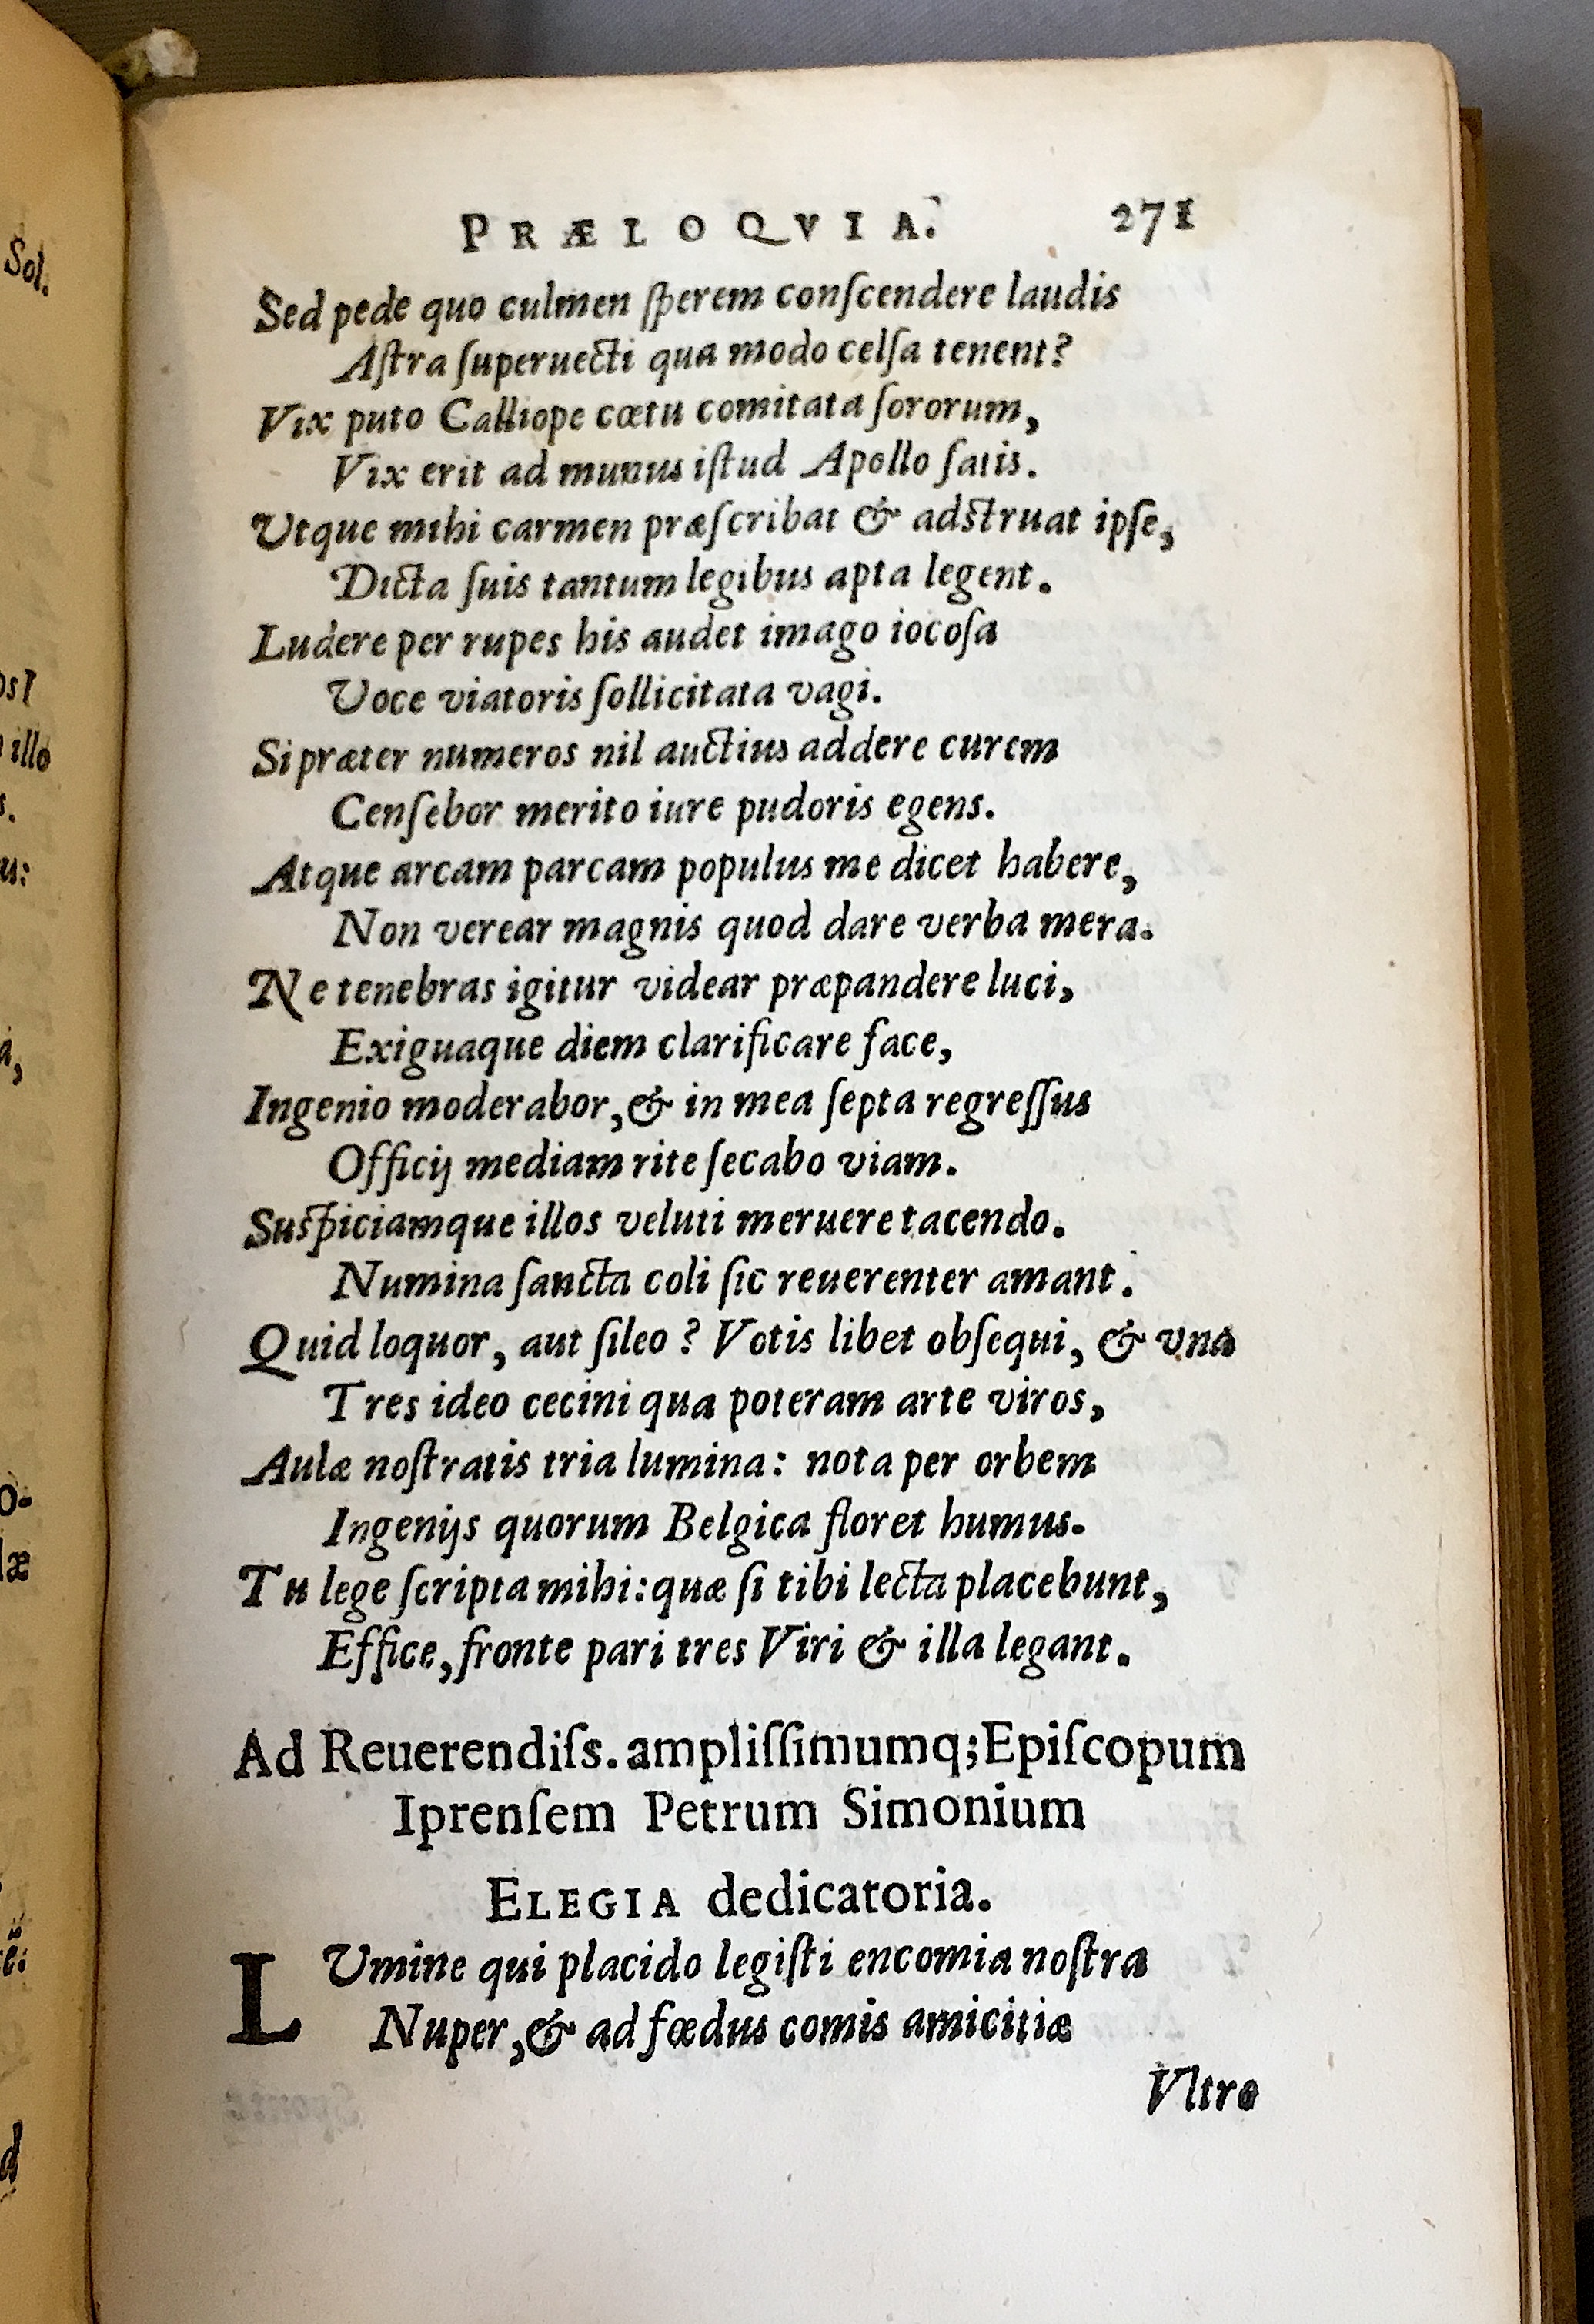 PRÆLOQVIA. 271
Sed pede quo culmen ſperem conſcendere laudis
Aſtra ſuperuecti qua modo celſa tenent?
Vix puto Calliope cœtu comitata ſororum,
Vix erit ad munus iſtud Apollo ſatis.
Utque mihi carmen præſcribat & adstruat ipſe,
Dicta ſuis tantum legibus apta legent.
Ludere per rupes his audet imago iocoſa
Uoce viatoris ſollicitata vagi.
Si præter numeros nil auctius addere curem
Cenſebor merito iure pudoris egens.
Atque arcam parcam populus me dicet habere,
Non verear magnis quod dare verba mera.
Ne tenebras igitur videar præpandere luci,
Exiguaque diem clarificare face,
Ingenio moderabor, & in mea ſepta regreſſus
Officij mediam rite ſecabo viam.
Suspiciamque illos veluti meruere tacendo.
Numina ſancta coli ſic reuerenter amant.
Quid loquor, aut ſileo? Votis libet obſequi, & vna
Tres ideo cecini qua poteram arte viros,
Aulæ noſtratis tria lumina: nota per orbem
Ingenijs quorum Belgica floret humus.
Tu lege ſcripta mihi: quæ ſi tibi lecta placebunt,
Effice, fronte pari tres Viri & illa legant.
Ad Reuerendiſs. ampliſſimumq; Epiſcopum
Iprenſem Petrum Simonium
ELEGIA dedicatoria.
LUmine qui placido legiſti encomia noſtra
Nuper, & ad fœdus comis amicitiæ
Vltro
Sol.
illo